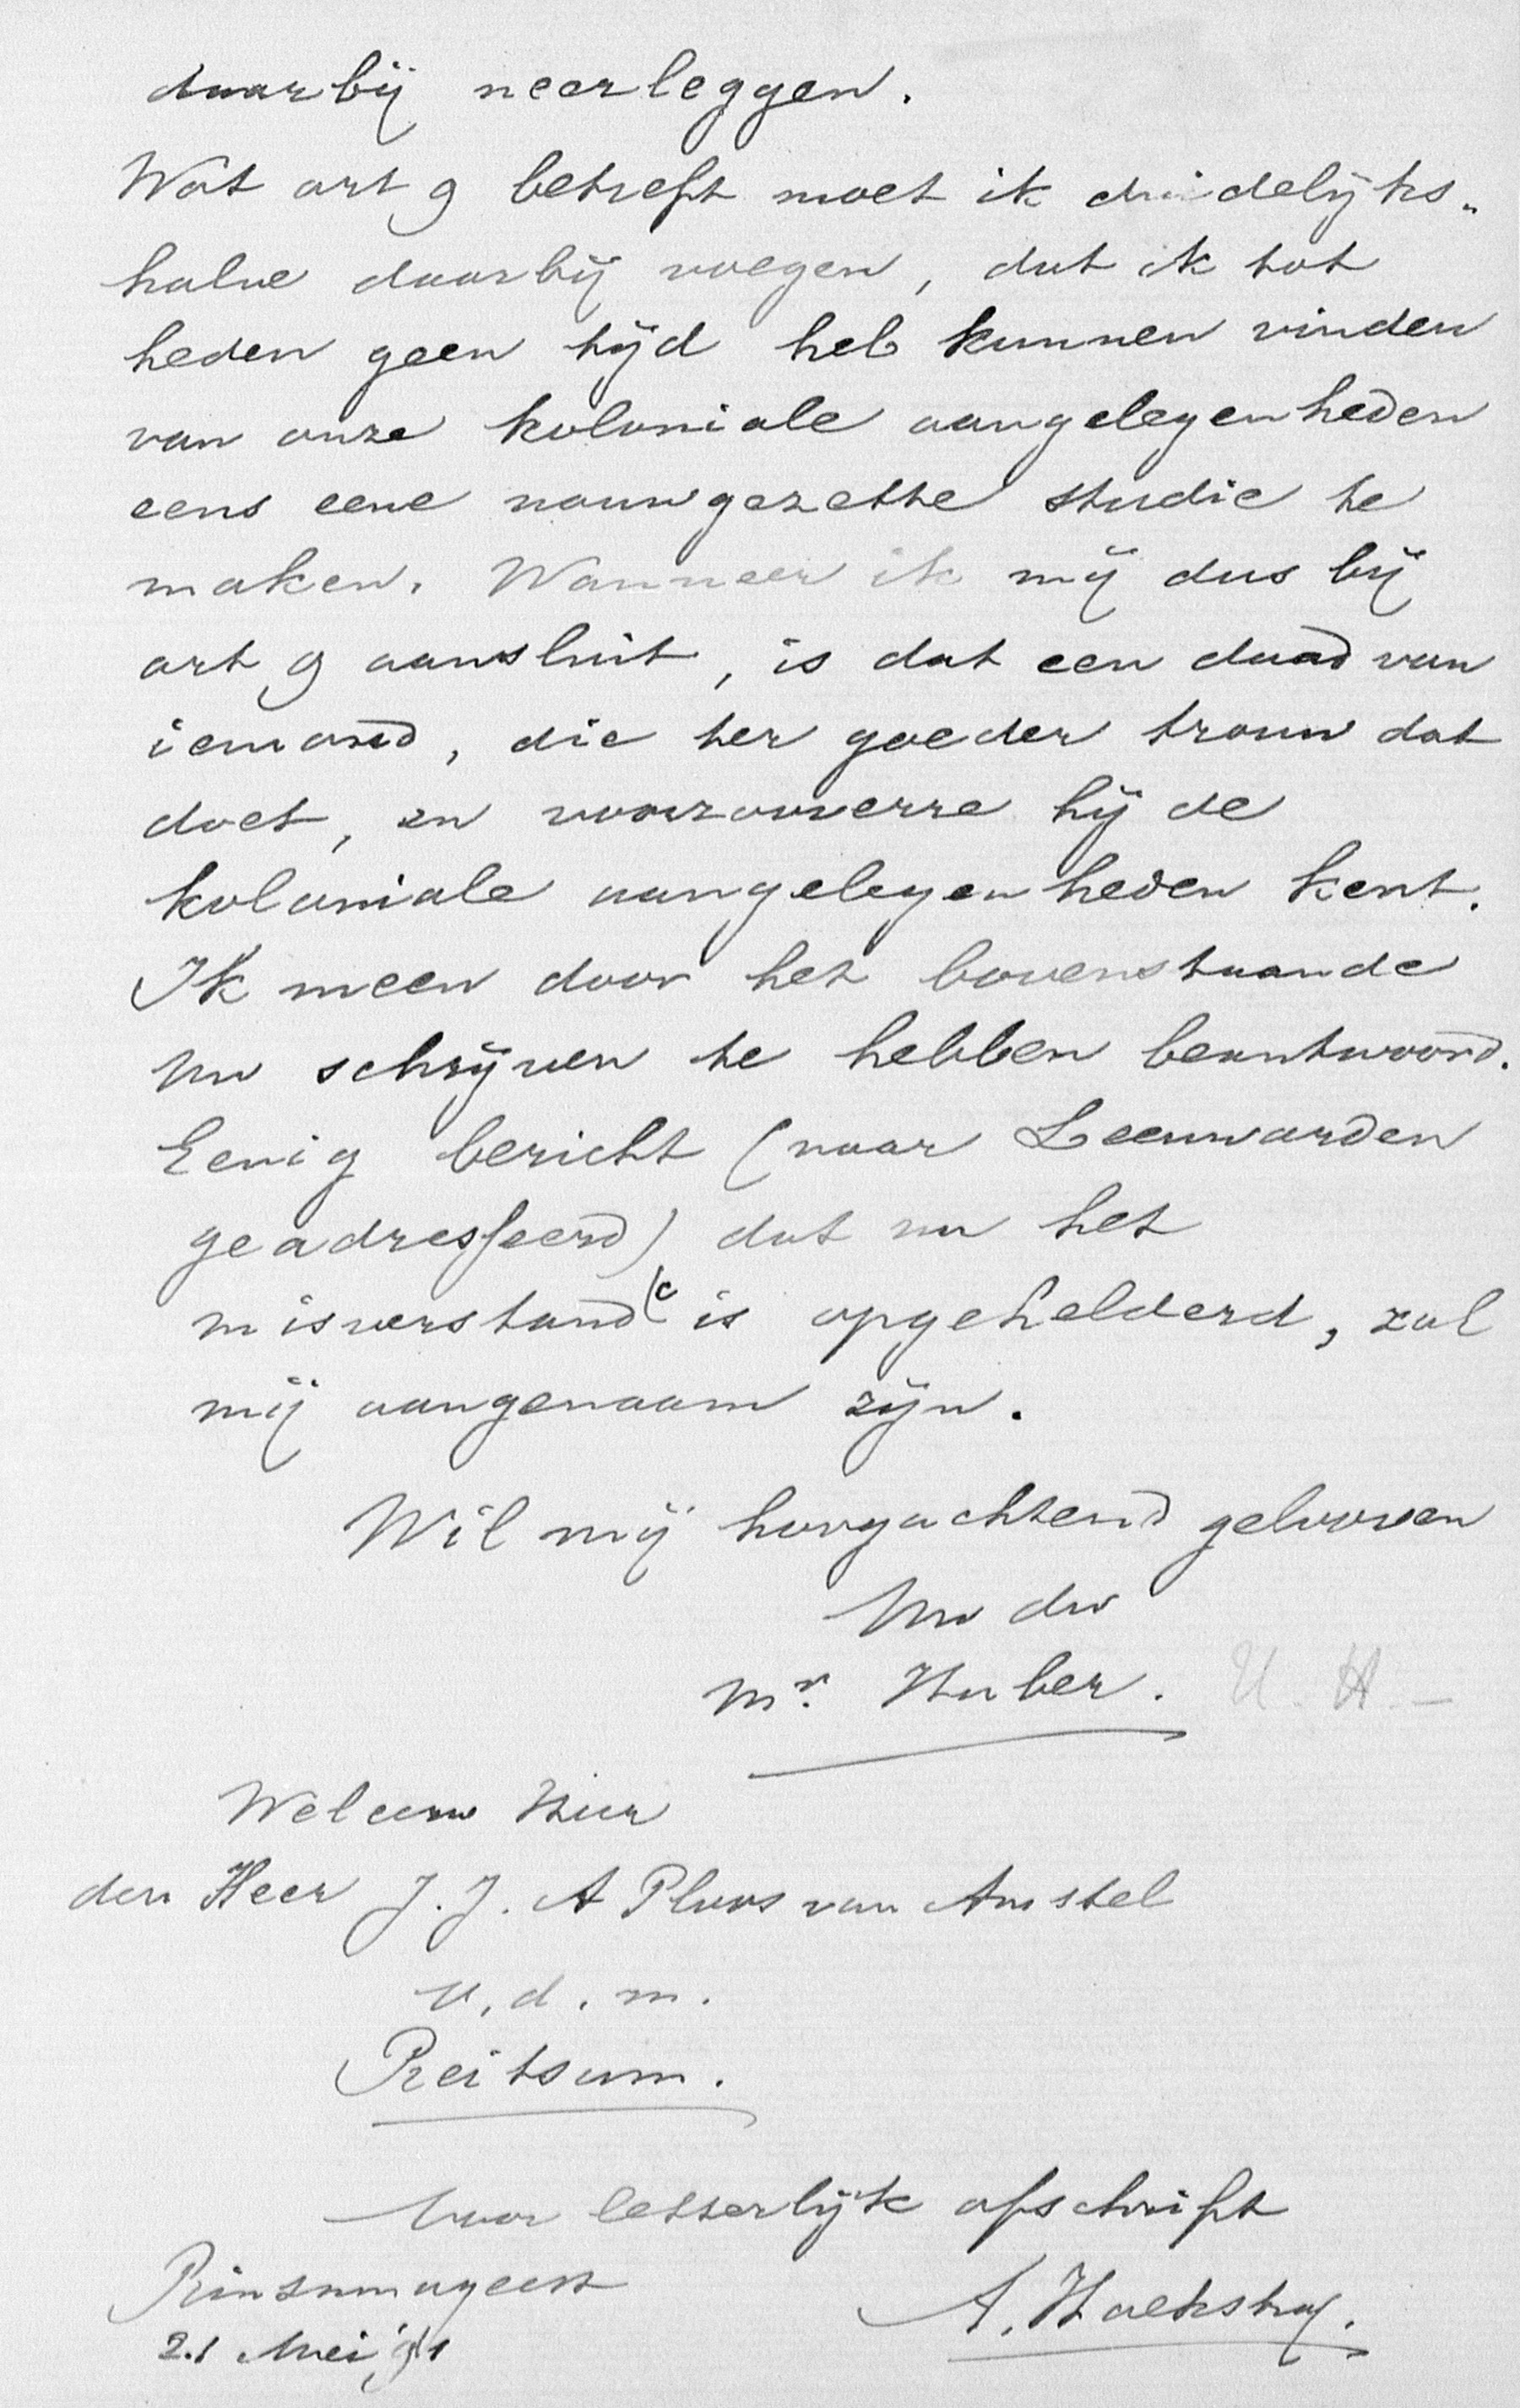 daarbij neerleggen.
Wat art 9 betreft moet ik duidelijks-
halve daarbij voegen, dat ik tot
heden geen tijd heb kunnen vinden
van onze koloniale aangelegenheden
eens eene nauwgezette studie te
maken. Wanneer ik mij dus bij
art 9 aansluit, is dat een daad van
iemand, die ter goeder trouw dat
doet, en voorzooverre hij de
koloniale aangelegenheden kent.
Ik meen door het bovenstaande
Uw schrijven te hebben beantwoord.
Eenig bericht (naar Leeuwarden
geadresseerd) dat nu het
misverstand is opgehelderd, zal
mij aangenaam zijn.
Wil mij hoogachtend gelooven
Uw dw
Mr. Huber. U. H. -
Weleerw Heer
den Heer J. J. A Ploos van Amstel
v. d. m.
Reitsum.
Voor letterlijk afschrift
Rinsumageest A. Hoekstra.
21 Mei '91